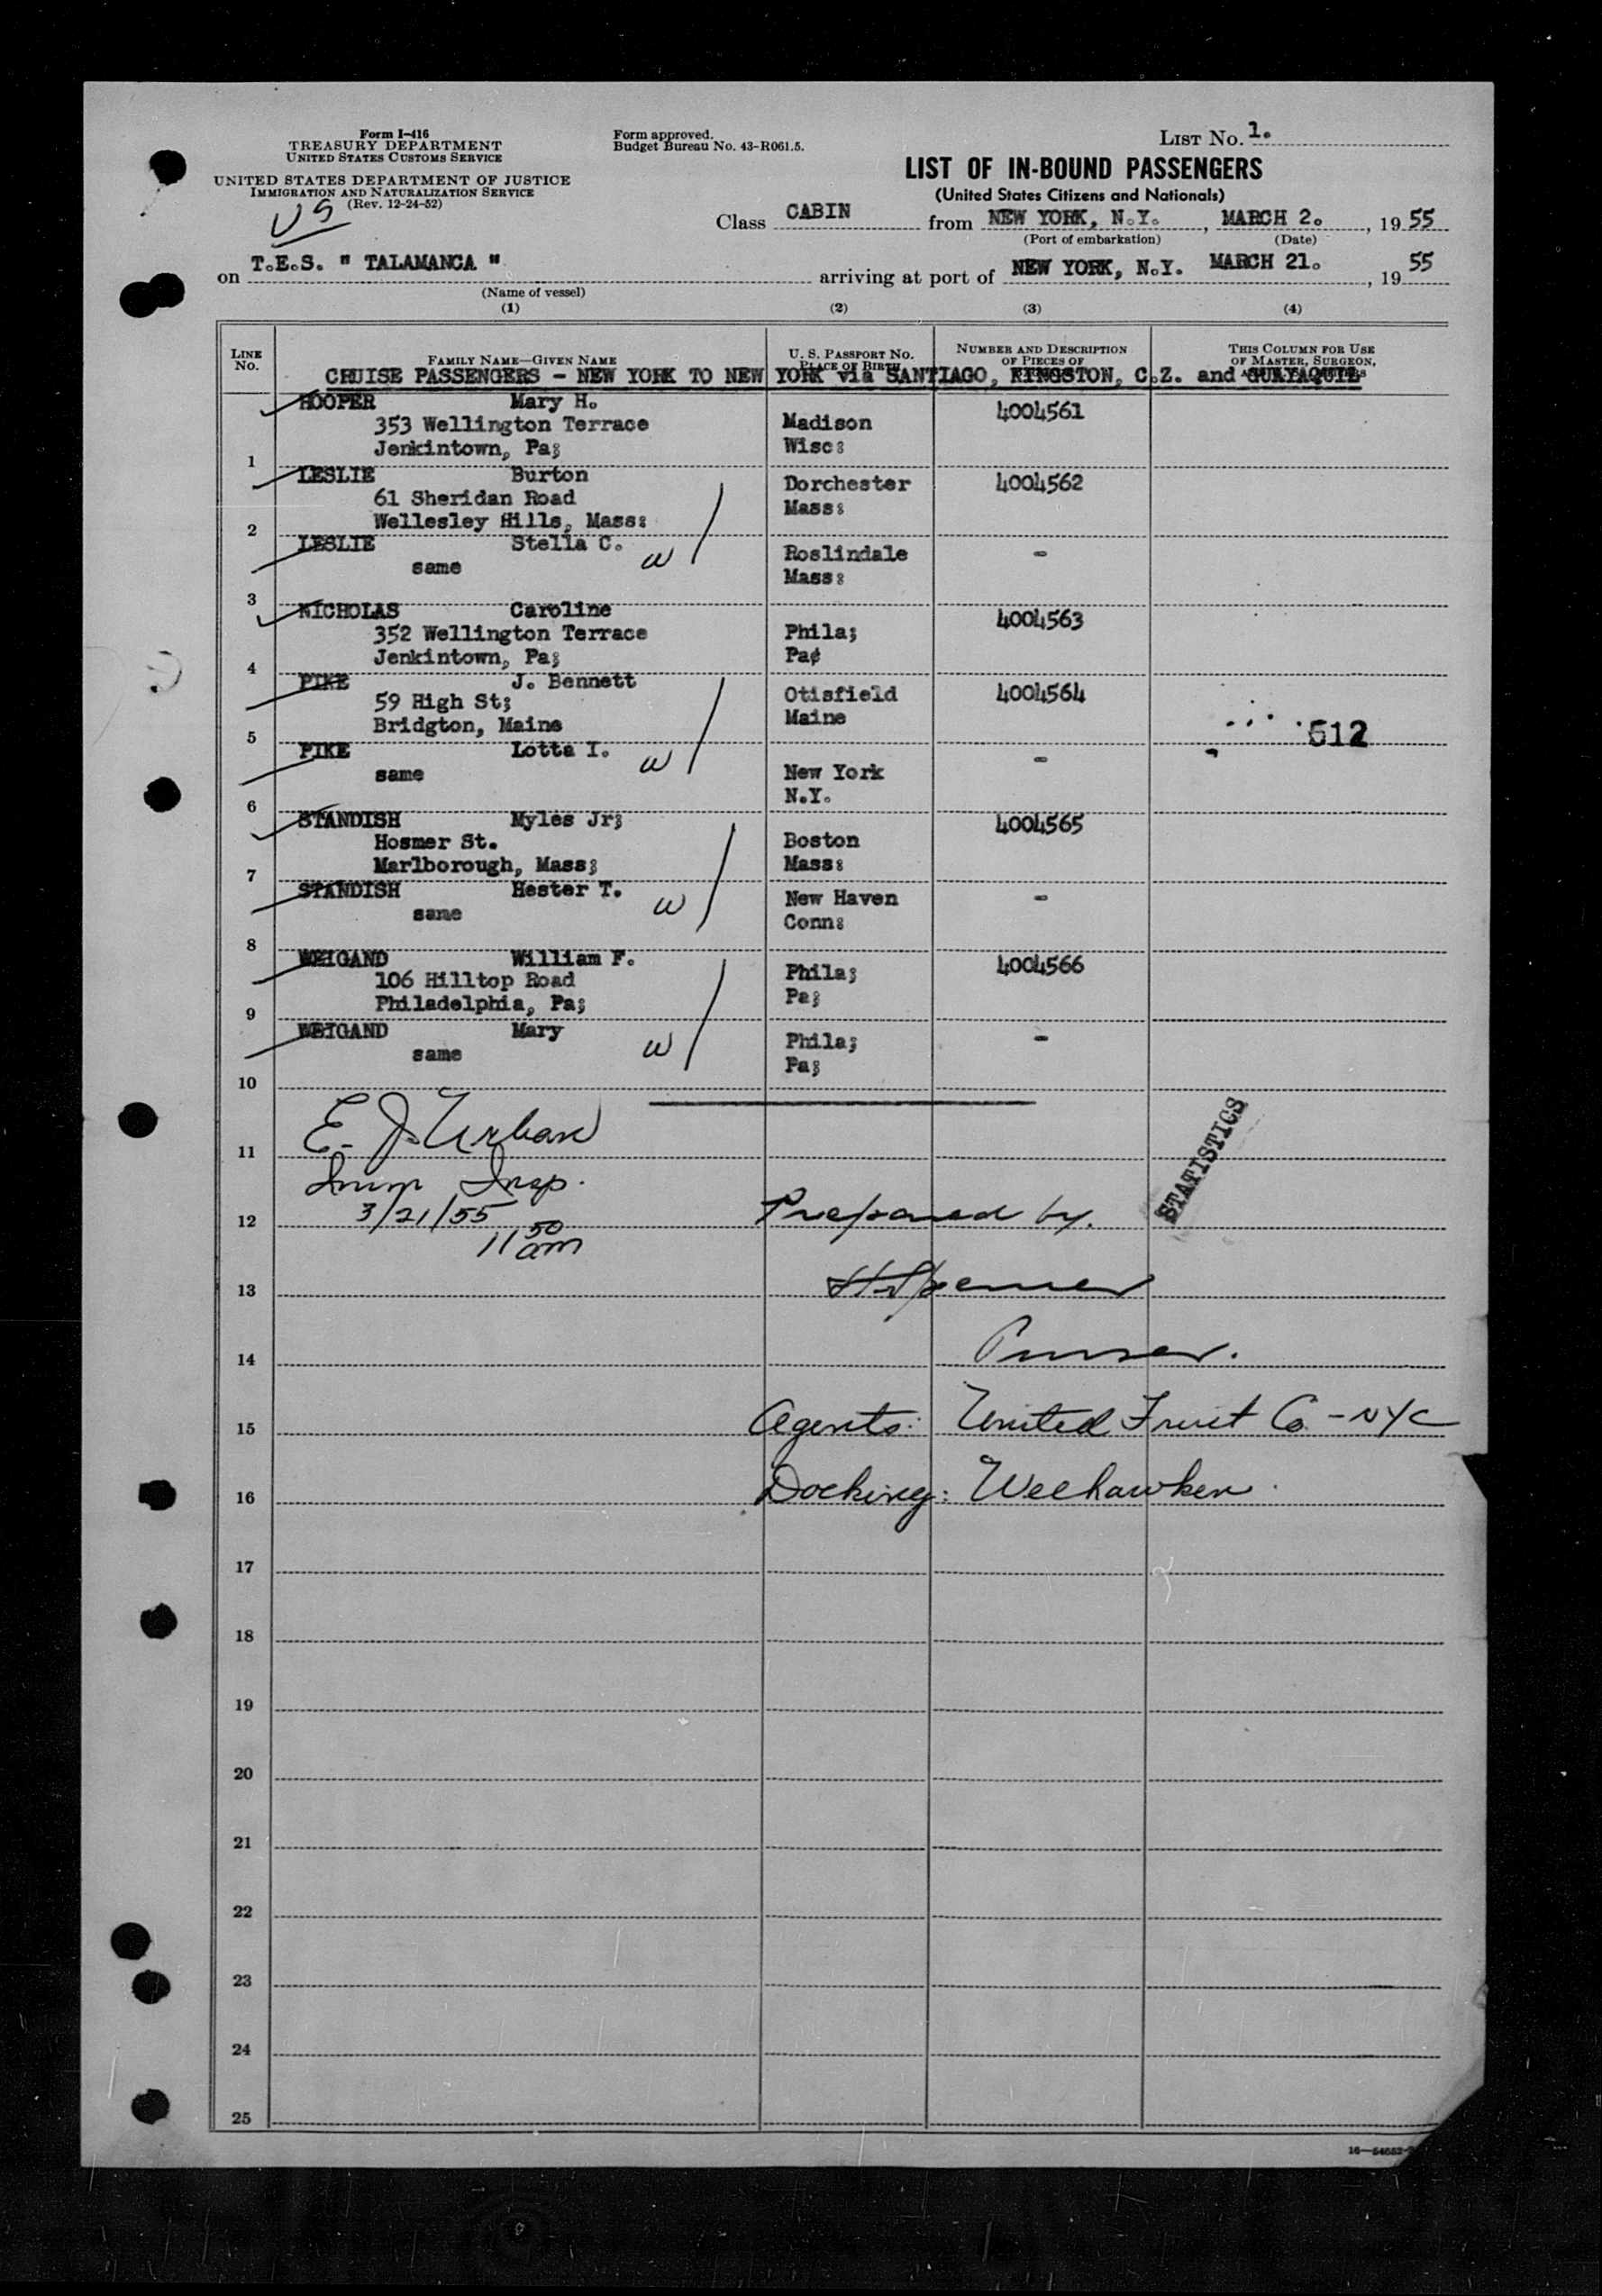 Form I-416
TREASURY DEPARTMENT
UNITED STATES CUSTOMS SERVICE
UNITED STATES DEPARTMENT OF JUSTICE
IMMIGRATION AND NATURALIZATION SERVICE
(Rev. 12-24-52)
US
Form approved.
Budget Bureau No. 43-R061.5.
LIST No. 1.
LIST OF IN-BOUND PASSENGERS
(United States Citizens and Nationals)
Class CABIN from NEW YORK, N.Y., MARCH 2., 1955
(Port of embarkation) (Date)
on T.E.S. " TALAMANCA " arriving at port of NEW YORK, N.Y. MARCH 21., 1955
(Name of vessel)
(1) (2) (3) (4)
LINE No. FAMILY NAME—GIVEN NAME U. S. PASSPORT NO. PLACE OF BIRTH NUMBER AND DESCRIPTION OF PIECES OF THIS COLUMN FOR USE OF MASTER, SURGEON,
CRUISE PASSENGERS - NEW YORK TO NEW YORK via SANTIAGO, KINGSTON, C.Z. and GUAYAQUIL
HOOPER Mary H. 4004561
353 Wellington Terrace Madison
Jenkintown, Pa; Wisc:
1
LESLIE Burton Dorchester 4004562
61 Sheridan Road Mass:
Wellesley Hills, Mass:
2
LESLIE Stella C. Roslindale -
same W Mass:
3
NICHOLAS Caroline 4004563
352 Wellington Terrace Phila;
Jenkintown, Pa; Pa¢
4
PIKE J. Bennett Otisfield 4004564
59 High St; Maine
Bridgton, Maine
5 612
PIKE Lotta I. -
same W New York
N.Y.
6
STANDISH Myles Jr; 4004565
Hosmer St. Boston
Marlborough, Mass; Mass:
7
STANDISH Hester T. New Haven -
same W Conn:
8
WEIGAND William F. 4004566
106 Hilltop Road Phila;
Philadelphia, Pa; Pa;
9
WEIGAND Mary Phila; -
same W Pa;
10
E. J. Urban
11
Imm Insp.
STATISTICS
3/21/55
12 Prepared by.
11 50 am
13
Purser.
14
15 Agents: United Fruit Co - NYC
16 Docking: Weehawken
17
18
19
20
21
22
23
24
25